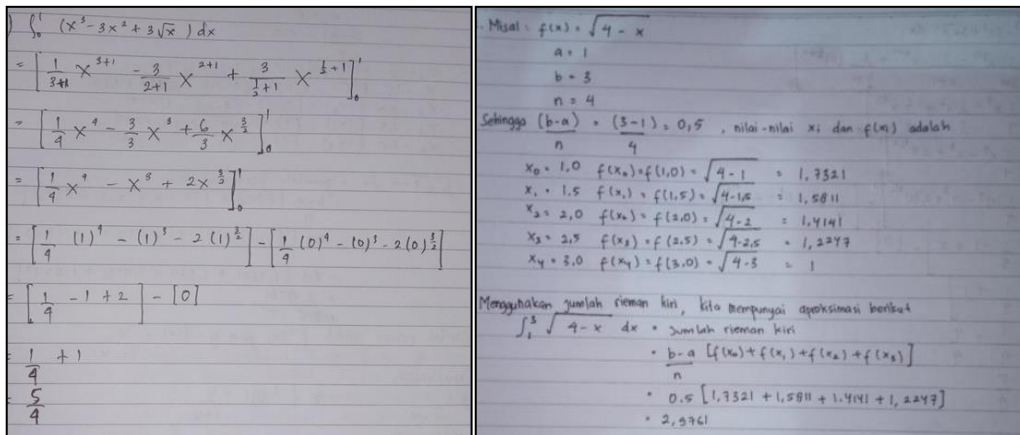 ) ∫₀¹ (x³ - 3x² + 3√x) dx
= [1/(3+1) x³⁺¹ - 3/(2+1) x²⁺¹ + 3/(1/2+1) x^(1/2+1)]₀¹
= [1/4 x⁴ - 3/3 x³ + 6/3 x^(3/2)]₀¹
= [1/4 x⁴ - x³ + 2x^(3/2)]₀¹
= [1/4 (1)⁴ - (1)³ - 2(1)^(3/2)] - [1/4 (0)⁴ - (0)³ - 2(0)^(3/2)]
= [1/4 - 1 + 2] - [0]
= 1/4 + 1
= 5/4
Misal : f(x) = √(4 - x)
a = 1
b = 3
n = 4
Sehingga (b-a)/n = (3-1)/4 = 0,5 , nilai-nilai xi dan f(xi) adalah
x₀ = 1,0 f(x₀) = f(1,0) = √(4-1) = 1,7321
x₁ = 1,5 f(x₁) = f(1,5) = √(4-1,5) = 1,5811
x₂ = 2,0 f(x₂) = f(2,0) = √(4-2) = 1,4141
x₃ = 2,5 f(x₃) = f(2,5) = √(4-2,5) = 1,2247
x₄ = 3,0 f(x₄) = f(3,0) = √(4-3) = 1
Menggunakan jumlah rieman kiri, kita mempunyai aproksimasi berikut
∫₁³ √(4-x) dx = Jumlah rieman kiri
= (b-a)/n [f(x₀) + f(x₁) + f(x₂) + f(x₃)]
= 0.5 [1,7321 + 1,5811 + 1.4141 + 1,2247]
= 2,9761